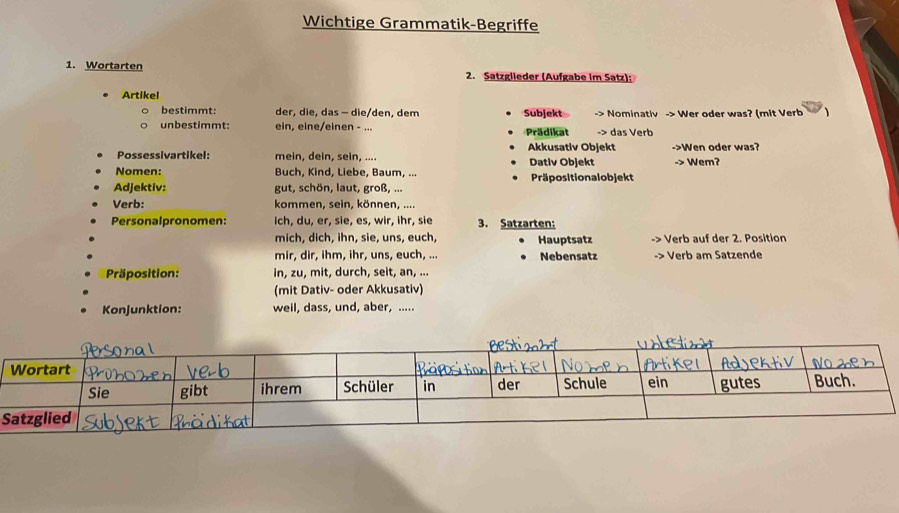 Wichtige Grammatik-Begriffe
1. Wortarten
• Artikel
o bestimmt: der, die, das – die/den, dem
o unbestimmt: ein, eine/einen - ...
• Possessivartikel: mein, dein, sein, ....
• Nomen: Buch, Kind, Liebe, Baum, ...
• Adjektiv: gut, schön, laut, groß, ...
• Verb: kommen, sein, können, ....
• Personalpronomen: ich, du, er, sie, es, wir, ihr, sie
• mich, dich, ihn, sie, uns, euch,
• mir, dir, ihm, ihr, uns, euch, ...
• Präposition: in, zu, mit, durch, seit, an, ...
• (mit Dativ- oder Akkusativ)
• Konjunktion: weil, dass, und, aber, .....
2. Satzglieder (Aufgabe im Satz):
• Subjekt -> Nominativ -> Wer oder was? (mit Verb )
• Prädikat -> das Verb
• Akkusativ Objekt ->Wen oder was?
• Dativ Objekt -> Wem?
• Präpositionalobjekt
3. Satzarten:
• Hauptsatz -> Verb auf der 2. Position
• Nebensatz -> Verb am Satzende
Personal Bestimmt unbestimmt
Wortart Pronomen Verb Präposition Artikel Nomen Artikel Adjektiv Nomen
Sie gibt ihrem Schüler in der Schule ein gutes Buch.
Satzglied Subjekt Prädikat